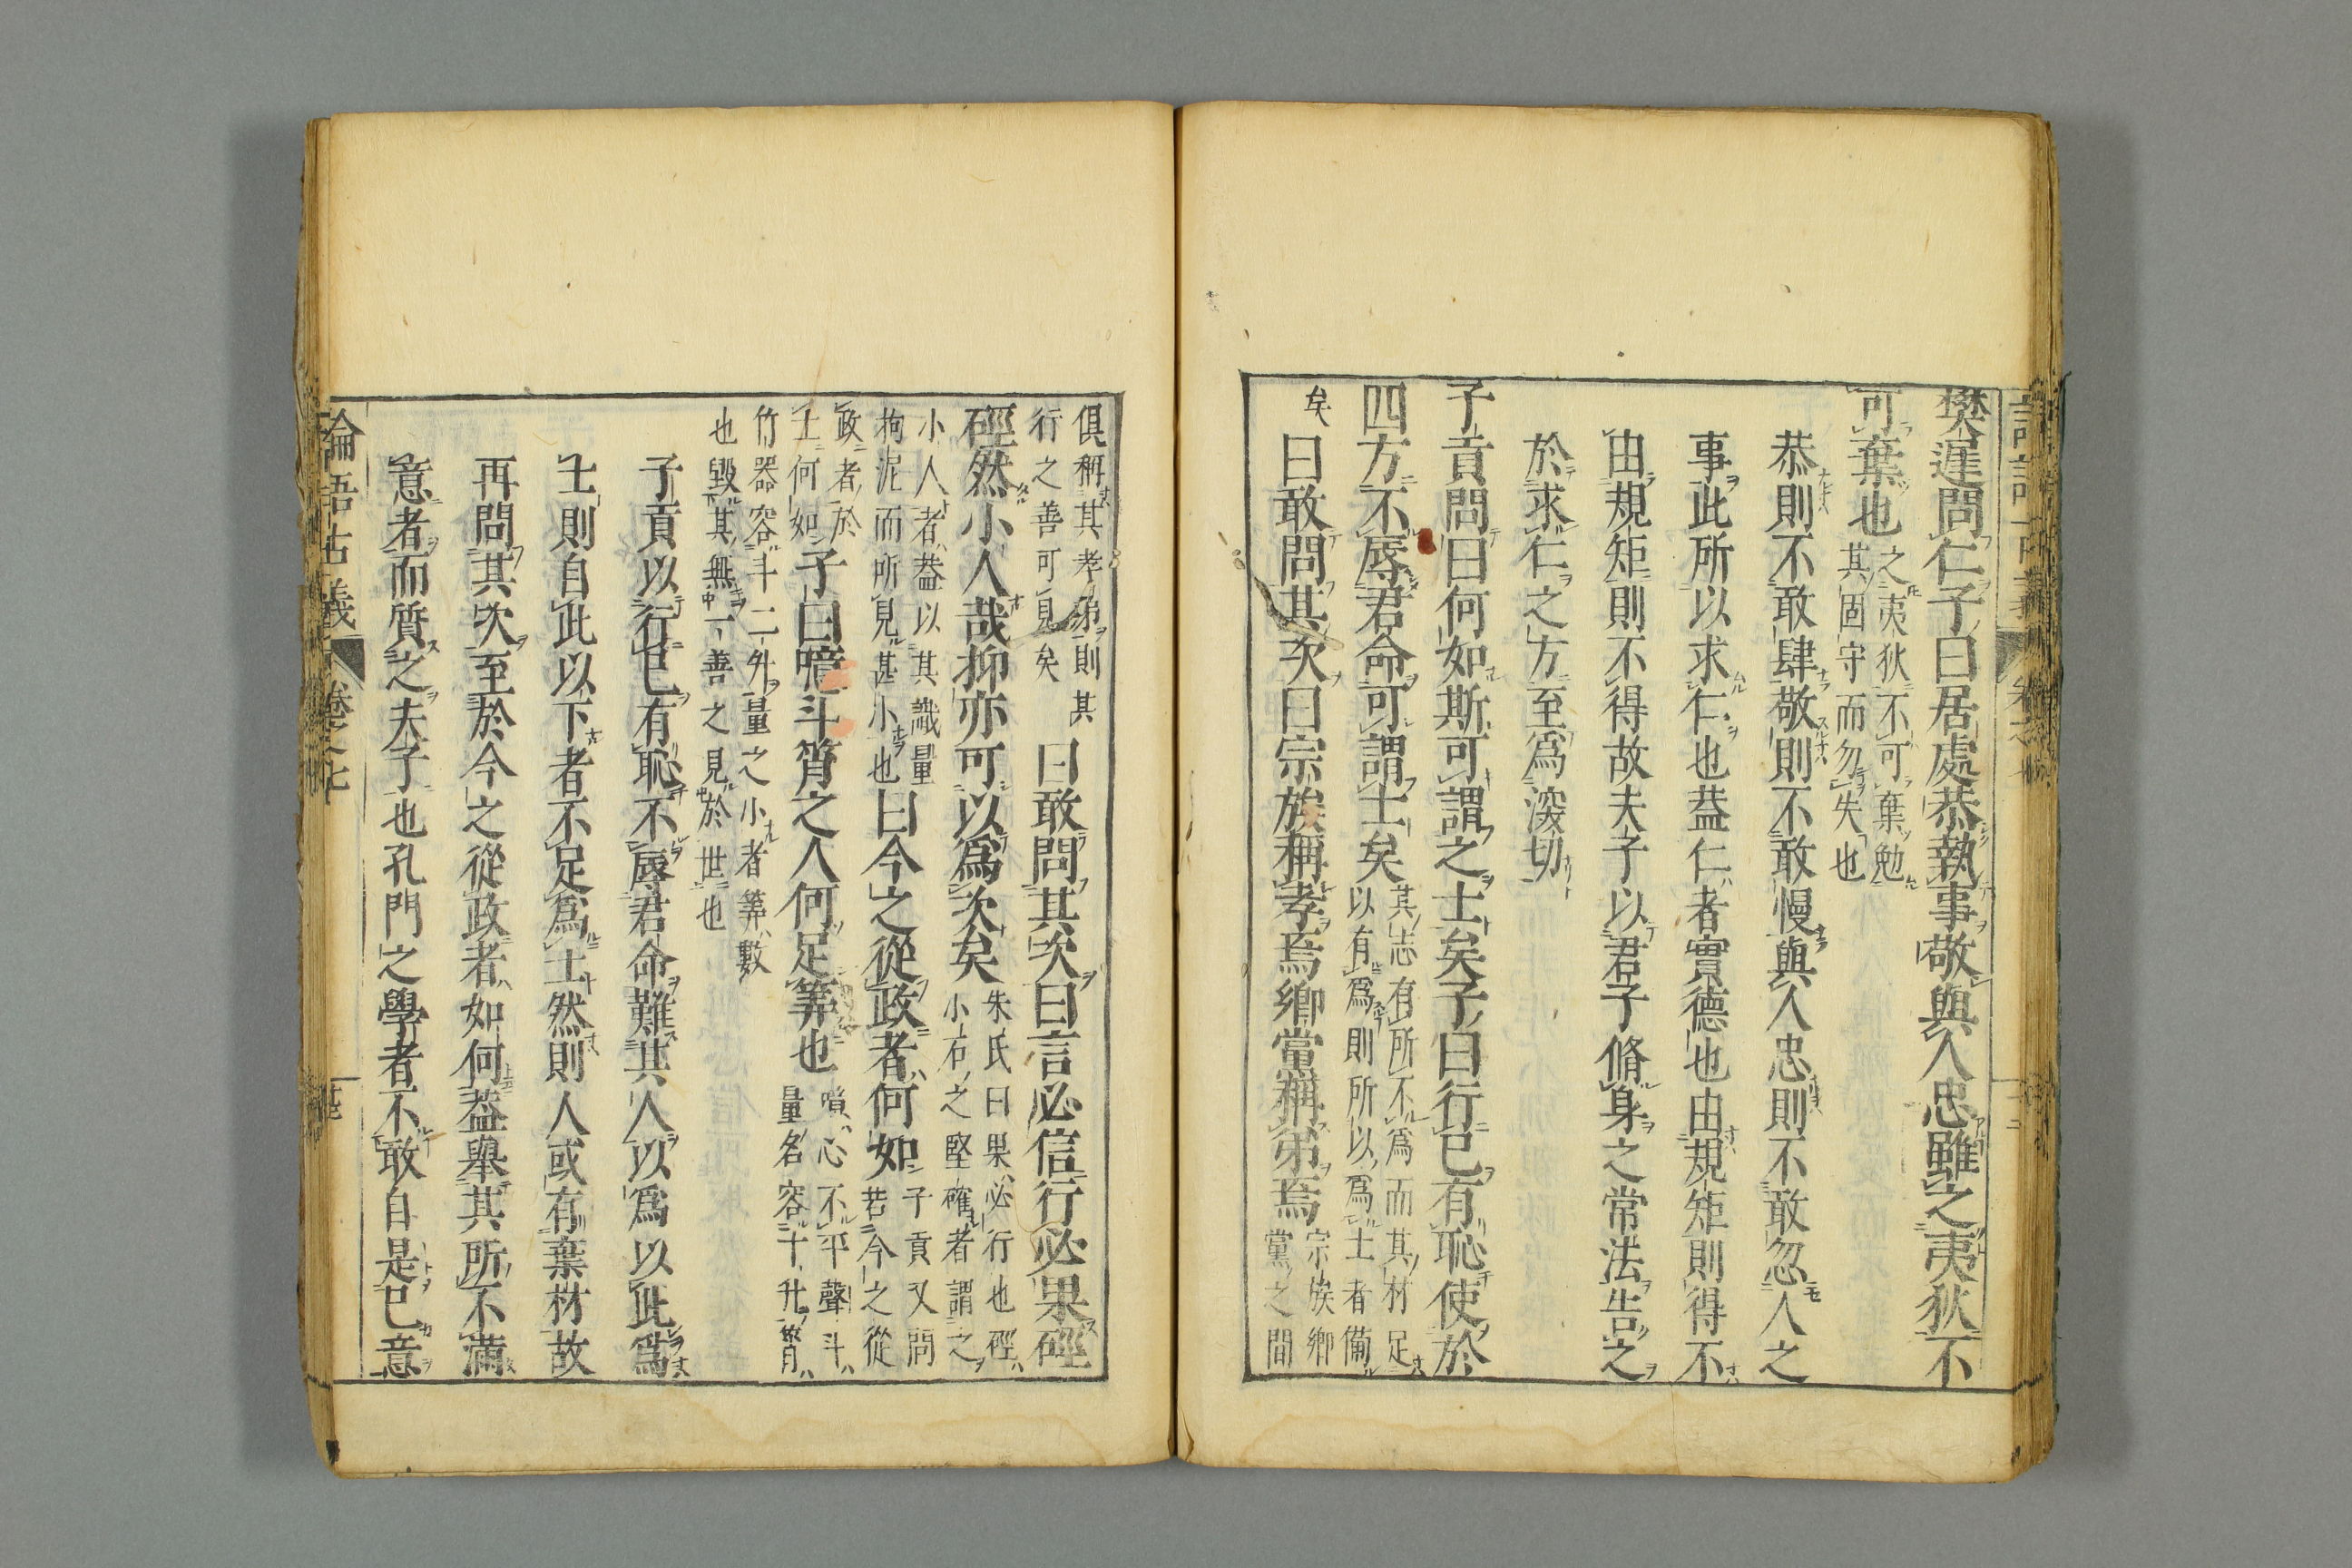 樊遲問仁子曰居處恭執事敬與人忠雖之夷狄不
可棄也
之夷狄不可棄勉
其固守而勿失也
恭則不敢肆敬則不敢慢與人忠則不敢忽人之
事此所以求仁也葢仁者實德也由規矩則得不
由規矩則不得故夫子以君子脩身之常法告之
於求仁之方至爲深切
子貢問曰何如斯可謂之士矣子曰行己有恥使於
四方不辱君命可謂士矣
其志有所不爲而其材足
以有爲則所以爲士者備
矣
曰敢問其次曰宗族稱孝焉鄉黨稱弟焉
宗族鄉
黨之間
俱稱其孝弟則其
行之善可見矣
曰敢問其次曰言必信行必果硜
硜然小人哉抑亦可以爲次矣
朱氏曰果必行也硜
小石之堅確者謂之
小人者葢以其識量
拘泥而所見甚小也
曰今之從政者何如
子貢又問
若今之從
政者於
士何如
子曰噫斗筲之人何足筭也
噫心不平聲斗
量名容十升筲
竹器容斗二外量之小者筭數
也毀其無一善之見於世也
子貢以行己有恥不辱君命難其人以爲以此爲
士則自此以下者不足爲士然則人或有棄材故
再問其次至於今之從政者如何葢舉其所不滿
意者而質之夫子也孔門之學者不敢自是己意
論語古義
卷之七